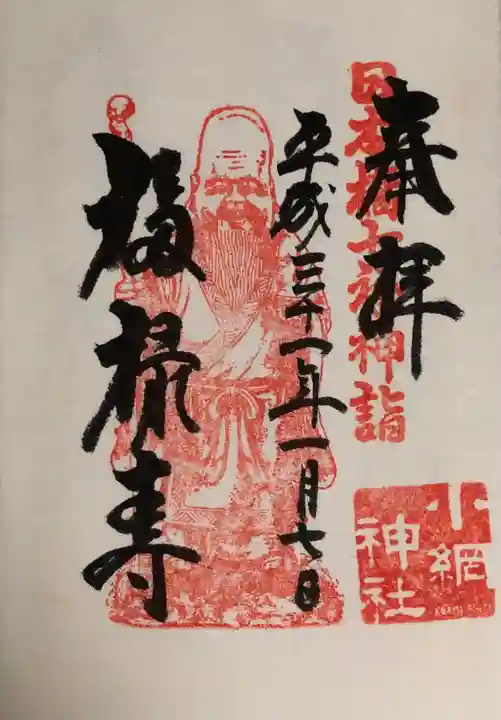 奉拝
日本橋七福神詣
平成三十一年一月七日
福禄寿
小網
神社